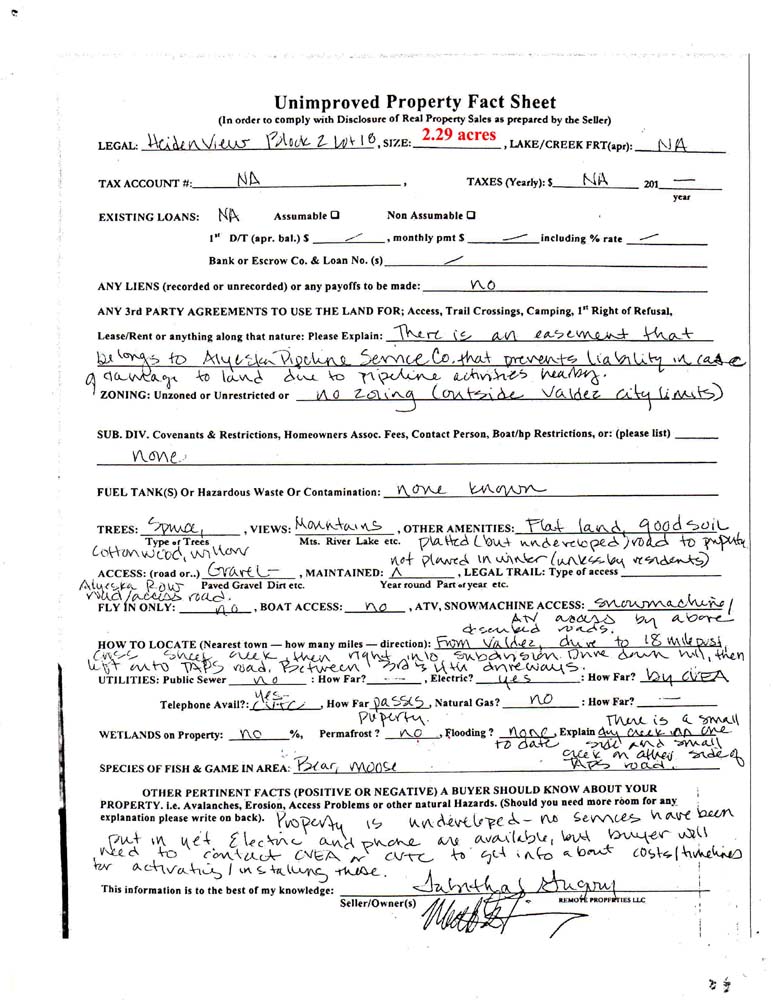 Unimproved Property Fact Sheet
(In order to comply with Disclosure of Real Property Sales as prepared by the Seller)
LEGAL: Heiden View Block 2 Lot 18, SIZE: 2.29 acres, LAKE/CREEK FRT(apr): NA
TAX ACCOUNT #: NA, TAXES (Yearly): $ NA 201 —
year
EXISTING LOANS: NA Assumable ☐ Non Assumable ☐
1st D/T (apr. bal.) $ —, monthly pmt $ — including % rate —
Bank or Escrow Co. & Loan No. (s) —
ANY LIENS (recorded or unrecorded) or any payoffs to be made: no
ANY 3rd PARTY AGREEMENTS TO USE THE LAND FOR; Access, Trail Crossings, Camping, 1st Right of Refusal,
Lease/Rent or anything along that nature: Please Explain: There is an easement that
belongs to Alyeska Pipeline Service Co. that prevents liability in case
of damage to land due to pipeline activities nearby.
ZONING: Unzoned or Unrestricted or no zoning (outside Valdez city limits)
SUB. DIV. Covenants & Restrictions, Homeowners Assoc. Fees, Contact Person, Boat/hp Restrictions, or: (please list)
none
FUEL TANK(S) Or Hazardous Waste Or Contamination: none known
TREES: Spruce, , VIEWS: Mountains , OTHER AMENITIES: Flat land, good soil
Type of Trees Mts. River Lake etc. platted (but undeveloped) road to property
Cottonwood, willow not plowed in winter (unless by residents)
ACCESS: (road or..) Gravel - , MAINTAINED: , LEGAL TRAIL: Type of access
Alyeska Row Paved Gravel Dirt etc. Year round Part of year etc.
road/access road.
FLY IN ONLY: no , BOAT ACCESS: no , ATV, SNOWMACHINE ACCESS: snowmachine/
ATV access by above
described roads.
HOW TO LOCATE (Nearest town – how many miles – direction): From Valdez, drive to 18 mile post,
cross Sheep creek, then right into subdivision. Drive down hill, then
left onto TAPS road. Between 3rd & 4th driveways.
UTILITIES: Public Sewer no : How Far? -- , Electric? yes : How Far? by CVEA
Telephone Avail?: yes- CVTC , How Far passes property. , Natural Gas? no : How Far? —
WETLANDS on Property: no %, Permafrost ? no , Flooding ? none to date , Explain There is a small
dry creek on one
side and small
creek on other side of
TAPS road.
SPECIES OF FISH & GAME IN AREA: Bear, moose
OTHER PERTINENT FACTS (POSITIVE OR NEGATIVE) A BUYER SHOULD KNOW ABOUT YOUR
PROPERTY. i.e. Avalanches, Erosion, Access Problems or other natural Hazards. (Should you need more room for any
explanation please write on back). Property is undeveloped - no services have been
put in yet. Electric and phone are available, but buyer will
need to contact CVEA or CVTC to get info about costs/timelines
for activating/installing these.
This information is to the best of my knowledge:
Seller/Owner(s) REMOTE PROPERTIES LLC